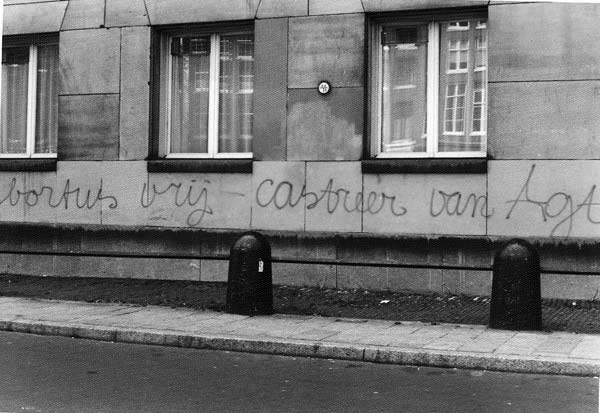 bortus vrij - castreer van Agt